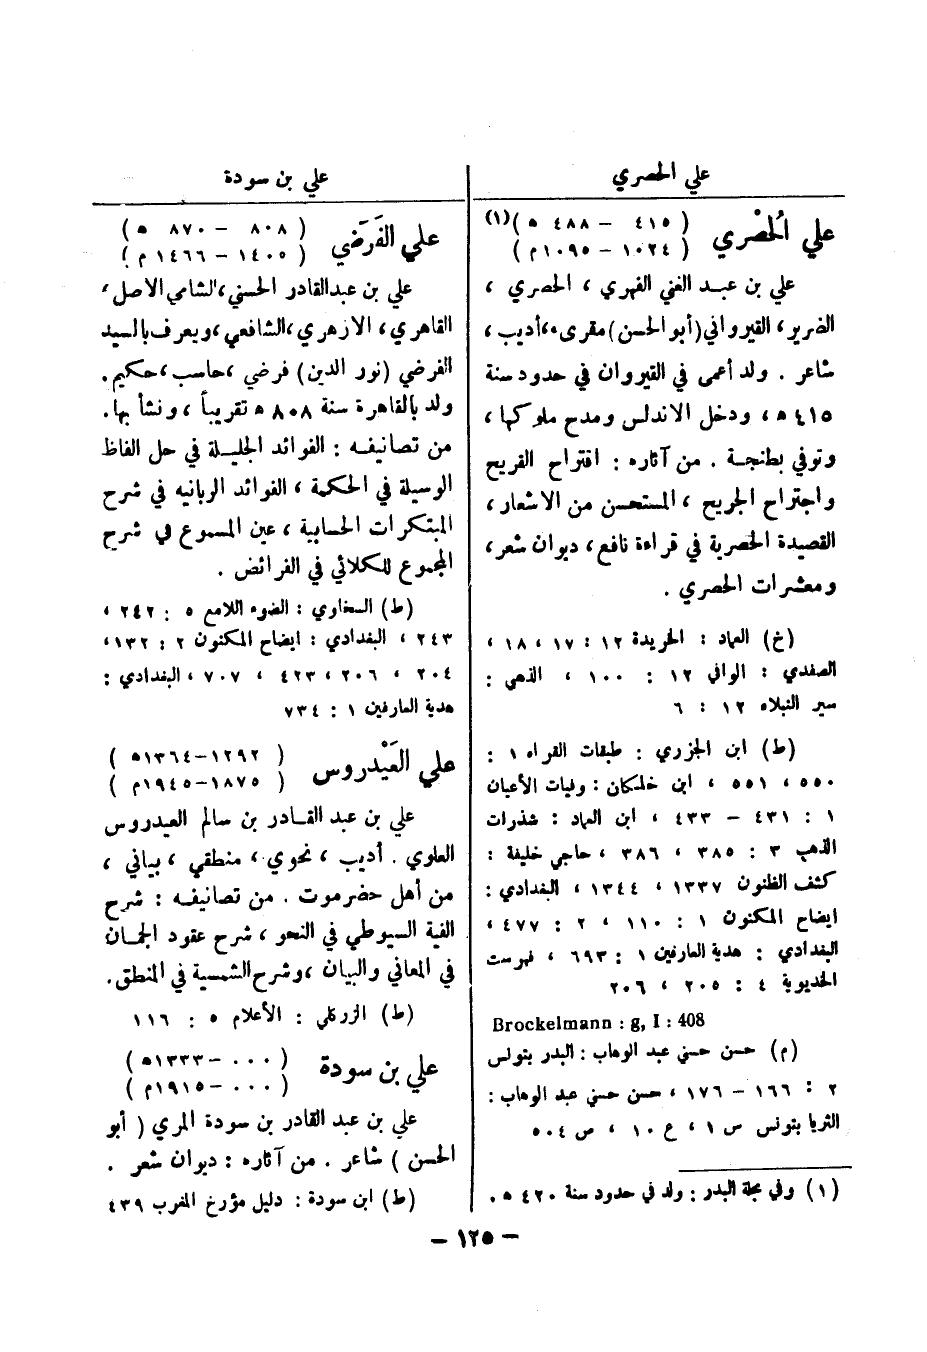 علي الحصري
علي الحُصْري ( ٤١٥ – ٤٨٨ ه )(١)
( ١٠٢٤ – ١٠٩٥ م )
علي بن عبد الغني الفهري ، الحصري ،
الضرير، القيرواني (أبو الحسن) مقرىء، أديب ،
شاعر . ولد أعمى في القيروان في حدود سنة
٤١٥ ه ، ودخل الاندلس ومدح ملوكها ،
وتوفي بطنجة . من آثاره : اقتراح القريح
واجتراح الجريح ، المستحسن من الاشعار ،
القصيدة الحصرية في قراءة نافع ، ديوان شعر ،
ومعشرات الحصري .
(خ) العماد : الخريدة ١٢ : ١٧ ، ١٨ ،
الصفدي : الوافي ١٢ : ١٠٠ ، الذهبي :
سير النبلاء ١٢ : ٦
(ط) ابن الجزري : طبقات القراء ١ :
٥٥٠ ، ٥٥١ ، ابن خلكان : وفيات الأعيان
١ : ٤٣١ – ٤٣٣ ، ابن العماد : شذرات
الذهب ٣ : ٣٨٥ ، ٣٨٦ ، حاجي خليفة :
كشف الظنون ١٣٣٧ ، ١٣٤٤ ، البغدادي :
ايضاح المكنون ١ : ١١٠ ، ٢ : ٤٧٧ ،
البغدادي : هدية العارفين ١ : ٦٩٣ ، فهرست
الخديوية ٤ : ٢٠٥ ، ٢٠٦
Brockelmann : g, I : 408
(م) حسن حسني عبد الوهاب : البدر بتونس
٢ : ١٦٦ – ١٧٦ ، حسن حسني عبد الوهاب :
الثريا بتونس س ١ ، ع ١٠ ، ص ٤٥٠
(١) وفي مجلة البدر : ولد في حدود سنة ٤٢٠ ه .
علي بن سودة
علي الفَرَضي ( ٨٠٨ – ٨٧٠ ه )
( ١٤٠٥ – ١٤٦٦ م )
علي بن عبدالقادر الحسني، الشامي الاصل ،
القاهري ، الازهري ، الشافعي ، ويعرف بالسيد
الفرضي (نور الدين) فرضي ، حاسب ، حكيم .
ولد بالقاهرة سنة ٨٠٨ ه تقريباً ، ونشأ بها .
من تصانيفه : الفوائد الجليلة في حل الفاظ
الوسيلة في الحكمة ، الفوائد الربانيه في شرح
المبتكرات الحسابية ، عين المسموع في شرح
المجموع للكلائي في الفرائض .
(ط) السخاوي : الضوء اللامع ٥ : ٢٤٢ ،
٢٤٣ ، البغدادي : ايضاح المكنون ٢ : ١٣٢ ،
٢٠٤ ، ٢٠٦ ، ٤٢٣ ، ٧٠٧ ، البغدادي :
هدية العارفين ١ : ٧٣٤
علي العَيْدروس ( ١٢٩٢ – ١٣٦٤ ه )
( ١٨٧٥ – ١٩٤٥ م )
علي بن عبد القادر بن سالم العيدروس
العلوي . أديب ، نحوي ، منطقي ، بياني ،
من أهل حضرموت . من تصانيفه : شرح
الفية السيوطي في النحو ، شرح عقود الجمان
في المعاني والبيان ، وشرح الشمسية في المنطق .
(ط) الزركلي : الأعلام ٥ : ١١٦
علي بن سودة ( ٠٠٠ – ١٣٣٣ ه )
( ٠٠٠ – ١٩١٥ م )
علي بن عبد القادر بن سودة المري ( أبو
الحسن ) شاعر . من آثاره : ديوان شعر .
(ط) ابن سودة : دليل مؤرخ المغرب ٤٣٩
– ١٢٥ –